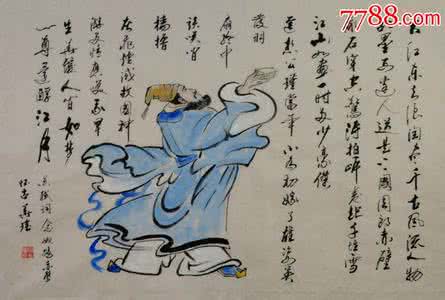 7788.com
大江东去浪淘尽千古风流人物
故垒西边人道是三國周郎赤壁
乱石穿空惊涛拍岸卷起千堆雪
江山如画一时多少豪傑
遥想公瑾當年小乔初嫁了雄姿英
發羽
扇纶巾
談笑间
樯櫓
灰飛烟滅故国神
游多情应笑我早
生华髮人间如梦
一尊還酹江月
东坡词念奴娇赤壁
怀古